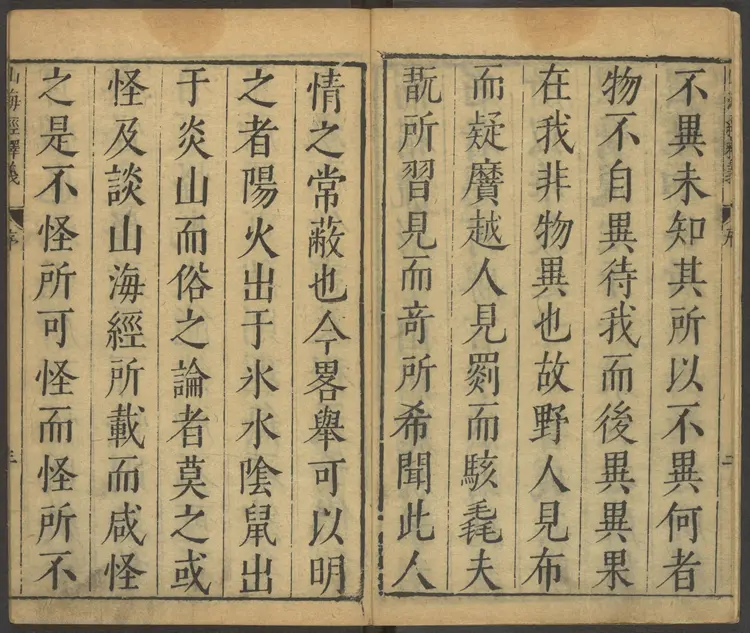 不異未知其所以不異何者
物不自異待我而後異異果
在我非物異也故野人見布
而疑黂越人見罽而駭毳夫
翫所習見而竒所希聞此人
二
情之常蔽也今畧舉可以明
之者陽火出于氷水陰鼠出
于炎山而俗之論者莫之或
怪及談山海經所載而咸怪
之是不怪所可怪而怪所不
山海經釋義
序
三